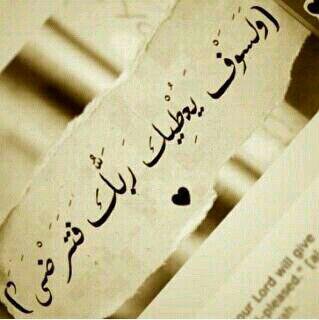 (ولَسَوْفَ يُعْطِيكَ رَبُّكَ فَتَرْضَىٰ)
our Lord will give
-pleased." [a
ah